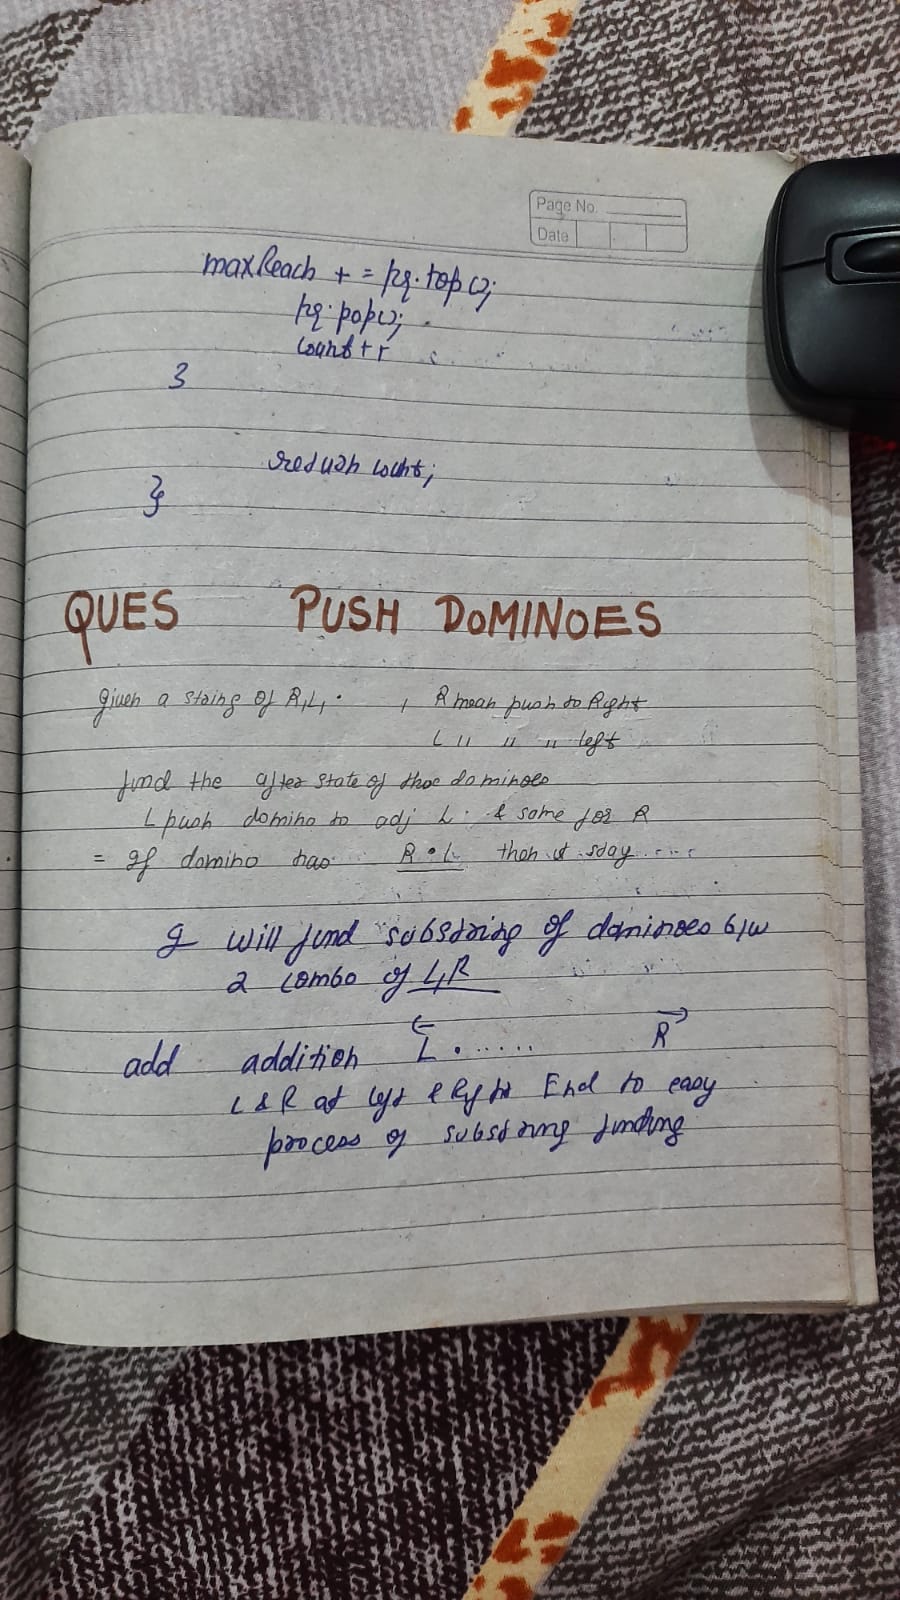 Page No.
Date
maxReach + = pq.top();
pq.pop();
count++
}
return count;
}
QUES PUSH DOMINOES
given a string of R, L, . , R mean push to Right
L " " " left
find the after state of thoe dominoes
L push domino to adj L. & same for R
= If domino has R . L then it stay
I will find substring of dominoes b/w
2 combo of L, R
add addition L . ...... R
L & R at left & Right End to easy
process of substring finding